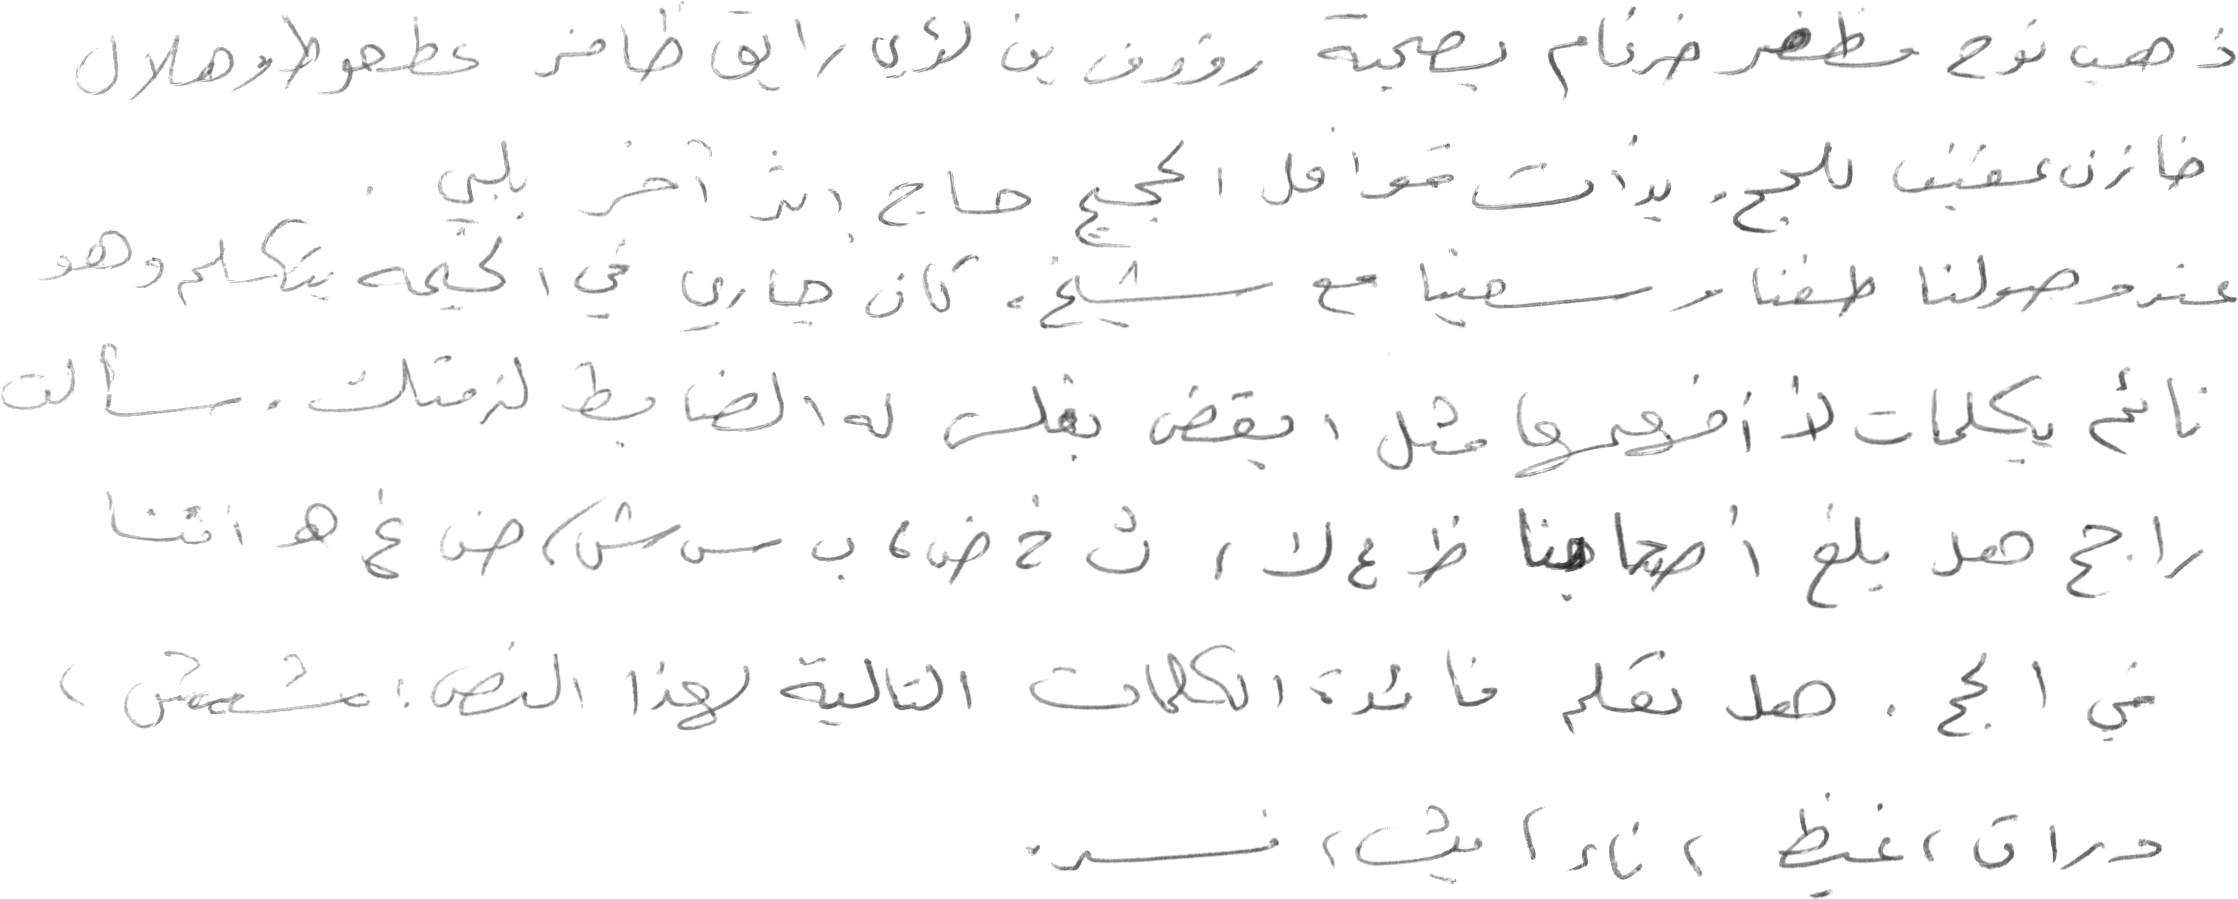 ذهب نوح مظفر ضرغام بصحبة رؤوف بن لؤي رايق ظافر عطعوط وهلال
خازن عفيف للحج. بدأت قوافل الحجيج حاج إثر آخر يلبي.
عند وصولنا طفنا وسعينا مع شيخ. كان جاري في الخيمه يتكلم وهو
نائم بكلمات لا أفهمها مثل ابغض بغل له الضابط لزمتك. سألت
راجح هل بلغ أصحابنا ظ ء لا، ث خ ض، ب س ش، ض غ هـ اثنا
في الحج. هل تعلم فائدة الكلمات التالية لهذا النص: مشمش،
دراق، غيظ، ناء، بث، فسد.